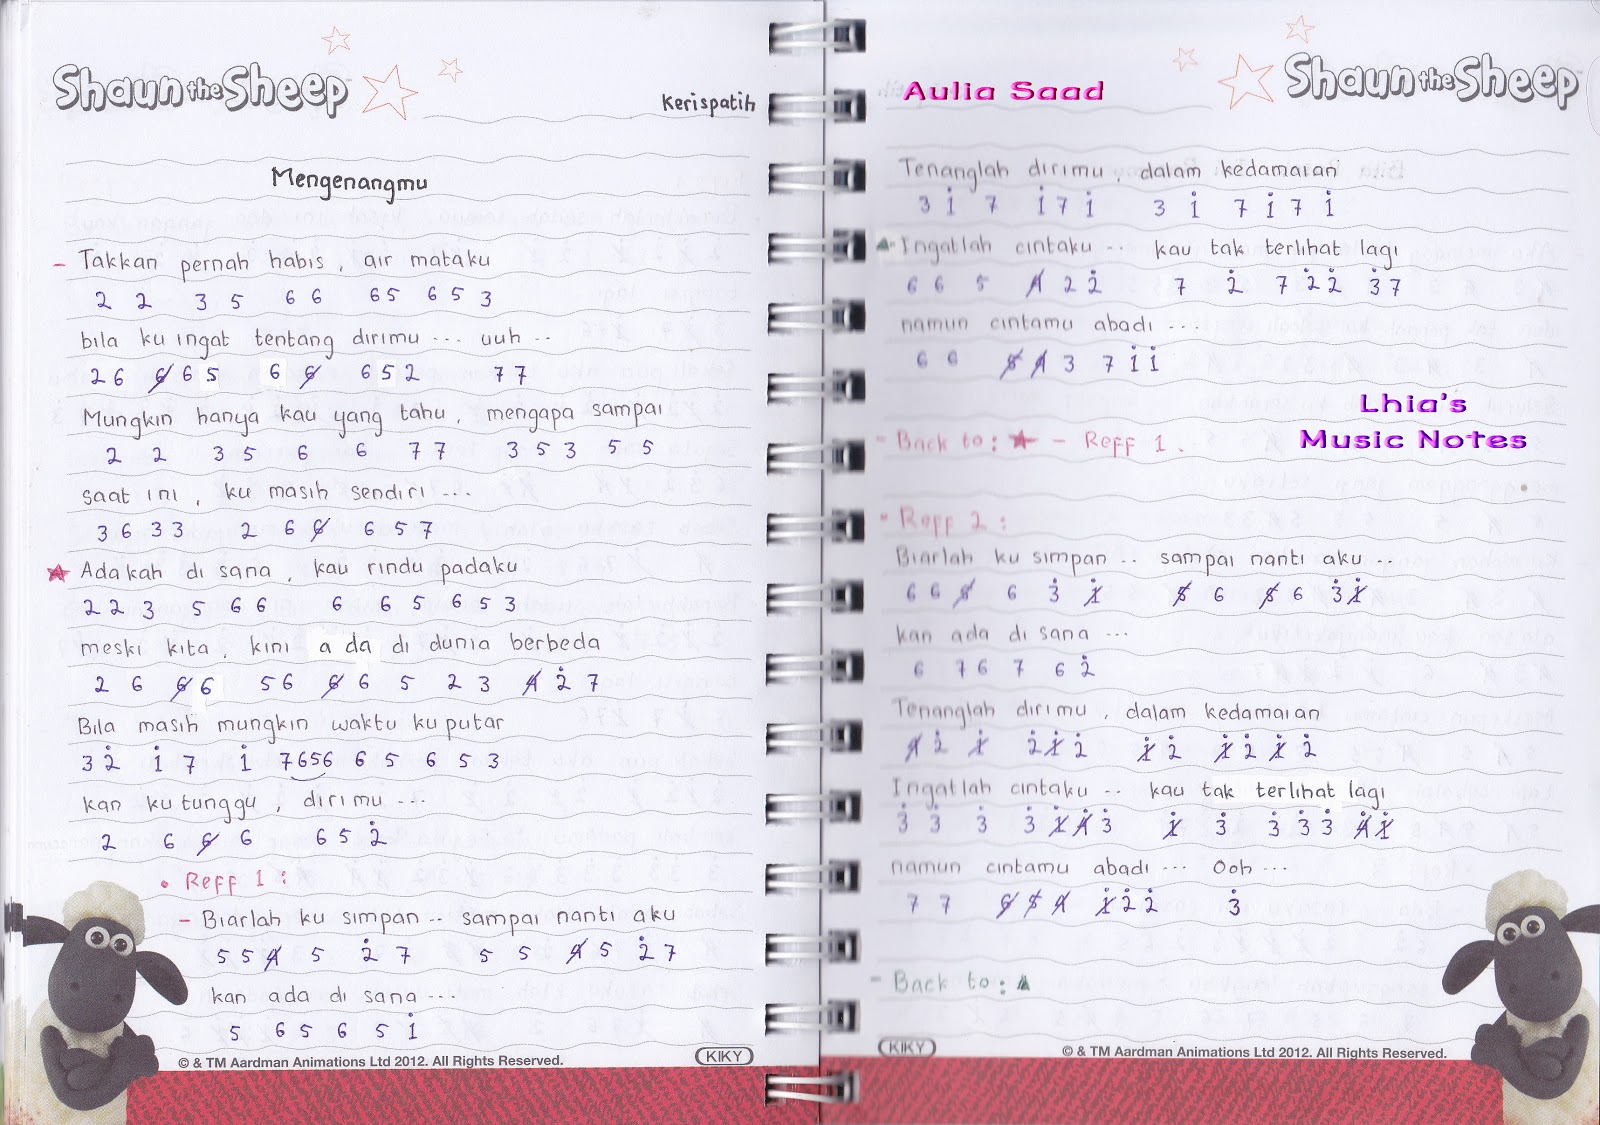 Shaun the Sheep
Kerispatih
Mengenangmu
- Takkan pernah habis, air mataku
2 2 3 5 6 6 6 5 6 5 3
bila ku ingat tentang dirimu ... uuh ..
2 6 6̸ 6 5 6 6̸ 6 5 2 7 7
Mungkin hanya kau yang tahu, mengapa sampai
2 2 3 5 6 6 7 7 3 5 3 5 5
saat ini, ku masih sendiri ...
3 6 3 3 2 6 6̸ 6 5 7
★ Adakah di sana, kau rindu padaku
2 2 3 5 6 6 6 6 5 6 5 3
meski kita, kini a da di dunia berbeda
2 6 6̸ 6 5 6 6̸ 6 5 2 3 4̸ 2̇ 7
Bila masih mungkin waktu ku putar
3 2̇ 1̇ 7 1̇ 7656 6 5 6 5 3
kan ku tunggu, dirimu ...
2 6 6̸ 6 6 5 2̇
• Reff 1 :
- Biarlah ku simpan .. sampai nanti aku
5 5 4̸ 5 2̇ 7 5 5 4̸ 5 2̇ 7
kan ada di sana ...
5 6 5 6 5 1̇
© & TM Aardman Animations Ltd 2012. All Rights Reserved.
KIKY
Aulia Saad
Shaun the Sheep
Tenanglah dirimu, dalam kedamaian
3 1̇ 7 1̇ 7 1̇ 3 1̇ 7 1̇ 7 1̇
▲- Ingatlah cintaku .. kau tak terlihat lagi
6 6 5 4̸ 2 2̇ 7 2̇ 7 2̇ 2̇ 3̇ 7
namun cintamu abadi ...
6 6 5̸ 4̸ 3 7 1̇ 1̇
Lhia's
Music Notes
- Back to : ★ - Reff 1.
- Reff 2 :
Biarlah ku simpan .. sampai nanti aku ..
6 6 5̸ 6 3̇ 1̸̇ 5̸ 6 5̸ 6 3̇ 1̸̇
kan ada di sana ...
6 7 6 7 6 2̇
Tenanglah dirimu, dalam kedamaian
4̸ 2̇ 1̸̇ 2̇ 1̸̇ 2̇ 1̸̇ 2̇ 1̸̇ 2̇ 1̸̇ 2̇
Ingatlah cintaku .. kau tak terlihat lagi
3̇ 3̇ 3̇ 3̇ 1̸̇ 4̸̇ 3̇ 1̸̇ 3̇ 3̇ 3̇ 3̇ 4̸̇ 1̸̇
namun cintamu abadi ... Ooh ...
7 7 6̸ 5̸ 4̸ 1̸̇ 2̇ 2̇ 3̇
- Back to : ▲
KIKY
© & TM Aardman Animations Ltd 2012. All Rights Reserved.